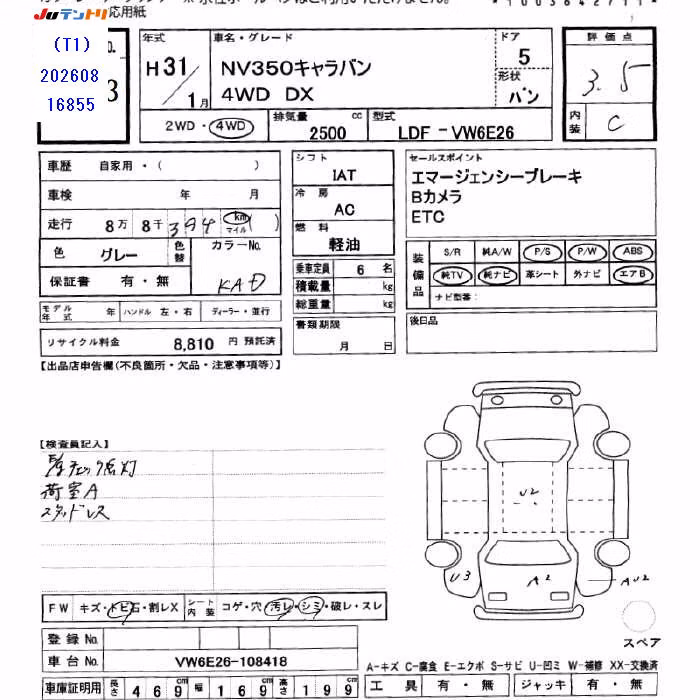 応用紙
Juテントリ
(T1)
202608
16855
No.
3
年式
H31/1月
車名・グレード
NV350キャラバン
4WD DX
ドア
5
形状
バン
評価点
3.5
内装
C
2WD・4WD
排気量
2500 cc
型式
LDF-VW6E26
車歴 自家用・( )
車検 年 月
走行 8万 8千 394 km マイル ( )
色 グレー 色替
カラーNo.
KAD
保証書 有・無
モデル年式 年 ハンドル 左・右 ディーラー・並行
リサイクル料金 8,810 円 預託済
シフト
IAT
冷房
AC
燃料
軽油
乗車定員 6 名
積載量 kg
総重量 kg
書類期限
月 日
セールスポイント
エマージェンシーブレーキ
Bカメラ
ETC
装備品
S/R 純A/W P/S P/W ABS
純TV 純ナビ 革シート 外ナビ エアB
ナビ型番:
後日品
【出品店申告欄(不良箇所・欠品・注意事項等)】
【検査員記入】
荷室A
スタッドレス
U2
U3
A2
AU2
スペア
FW キズ・トビ石・割レX シート内装 コゲ・穴・汚レ・シミ・破レ・スレ
登録 No.
車台 No. VW6E26-108418
車庫証明用 長さ 469cm 幅 169cm 高さ 199cm
A-キズ C-腐食 E-エクボ S-サビ U-凹ミ W-補修 XX-交換済
工具 有・無 ジャッキ 有・無